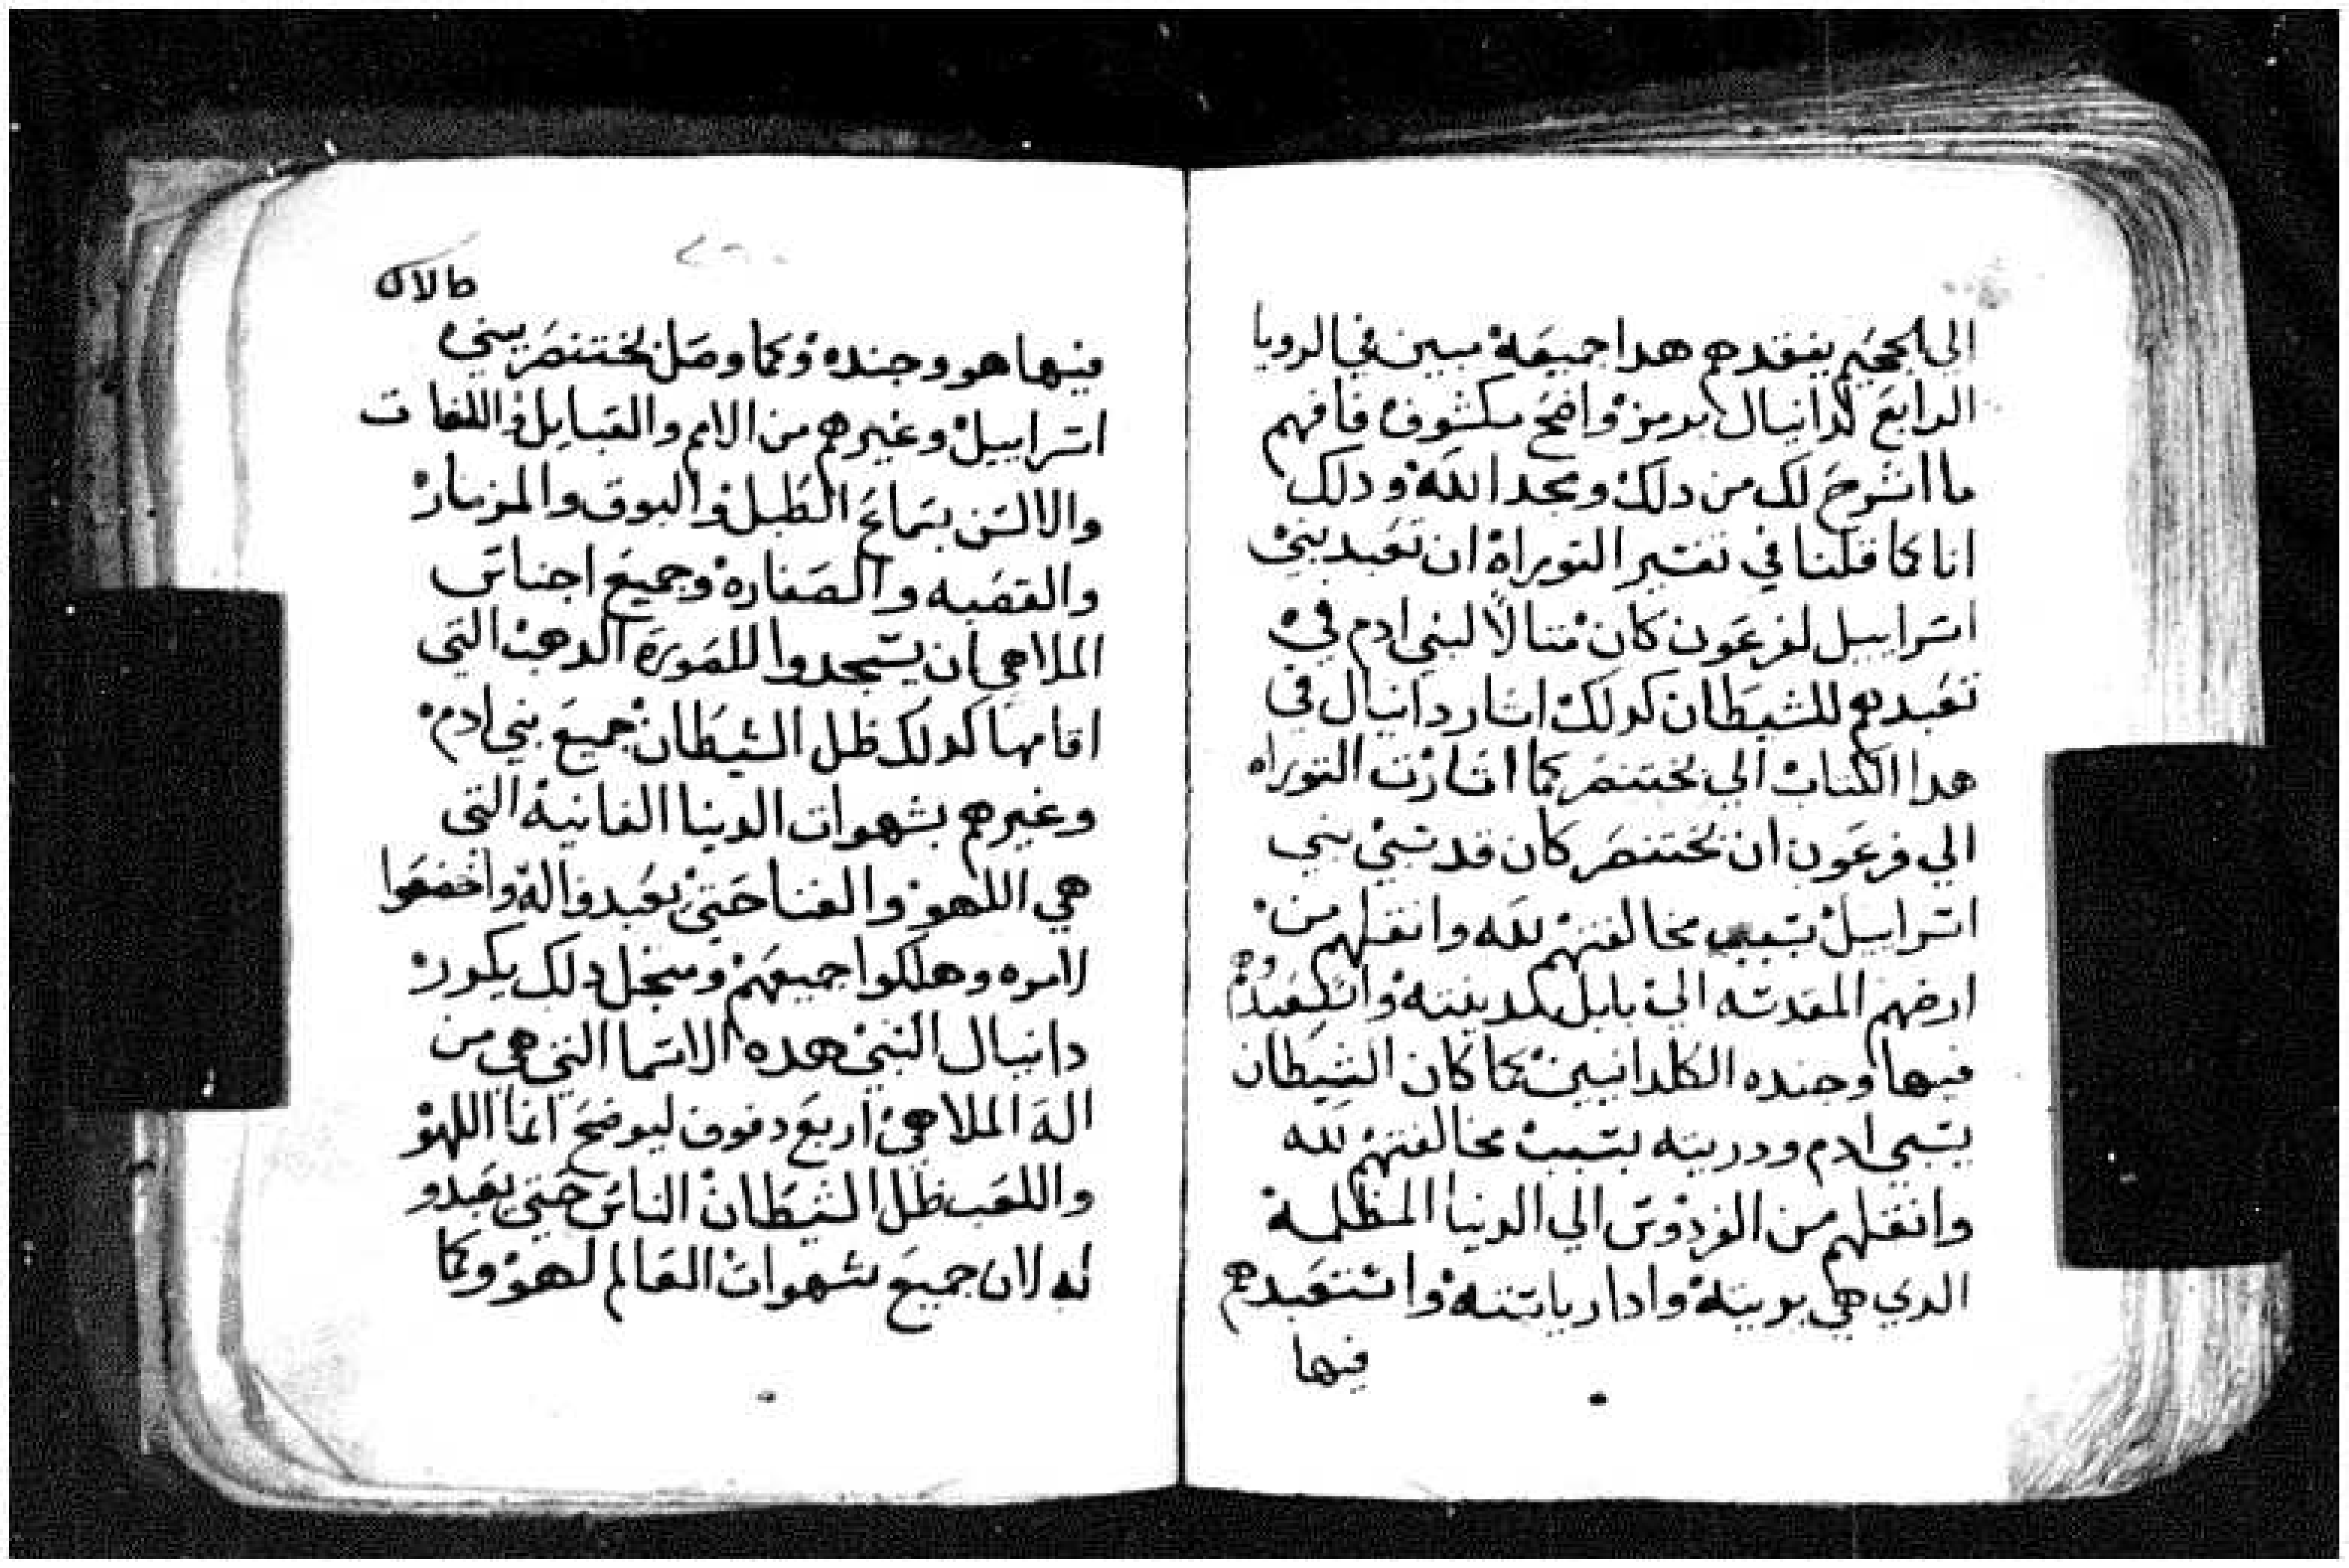 الي الجحيم يفقدهم هدا جميعة مبين في الرويا
الرابع لدانيال برمز واضح مكشوف فافهم
ما اشرح لك من دلك ومجد الله ودلك
انا كما قلنا في تفتير التوراة ان تعبد بني
اتراييل لفرعون كان متالا لبني ادم في
تعبدهم للشيطان كدلك اشار دانيال في
هدا الكتاب الي بختنصر كما اشارت التوراه
الي فرعون ان بختنصر كان قد تبي بني
اتراييل بتبب مخالفتهم لله وانقلهم من
ارضهم المقدته الي بابل مدينته واتعبدهم
فيها وجنده الكلدانيين كما كان الشيطان
يتبي ادم ودريته بتبب مخالفتهم لله
وانقلهم من الفردوس الي الدنيا المظلمة
الدي هي بريته وادار ياتته واتتعبدهم
فيها
فيها هو وجنده وكما وصل بختنصر بيني
اتراييل وغيرهم من الامم والقبايل واللغات
والالتن بتماع الطبل والبوق والمزمار
والقصبه والصفاره وجميع اجناس
الملاهي ان يتجدوا للصورة الدهب التي
اقامها كدلك ظل الشيطان جميع بني ادم
وغيرهم بشهوات الدنيا الفانية التي
هي اللهو والغنا حتي يعبدوا له واخضعوا
لامره وهلكوا جميعهم ومن اجل دلك يكرر
دانيال النبي هده الاتما التي هي من
الة الملاهي اربع دفوف ليوضح انما اللهو
واللعب ظل الشيطان الناس حتي يعبدو
له لان جميع شهوات العالم لهو وكما